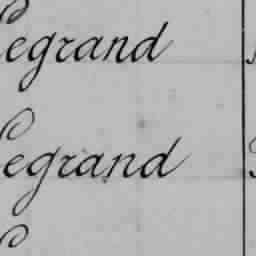 Legrand
Legrand